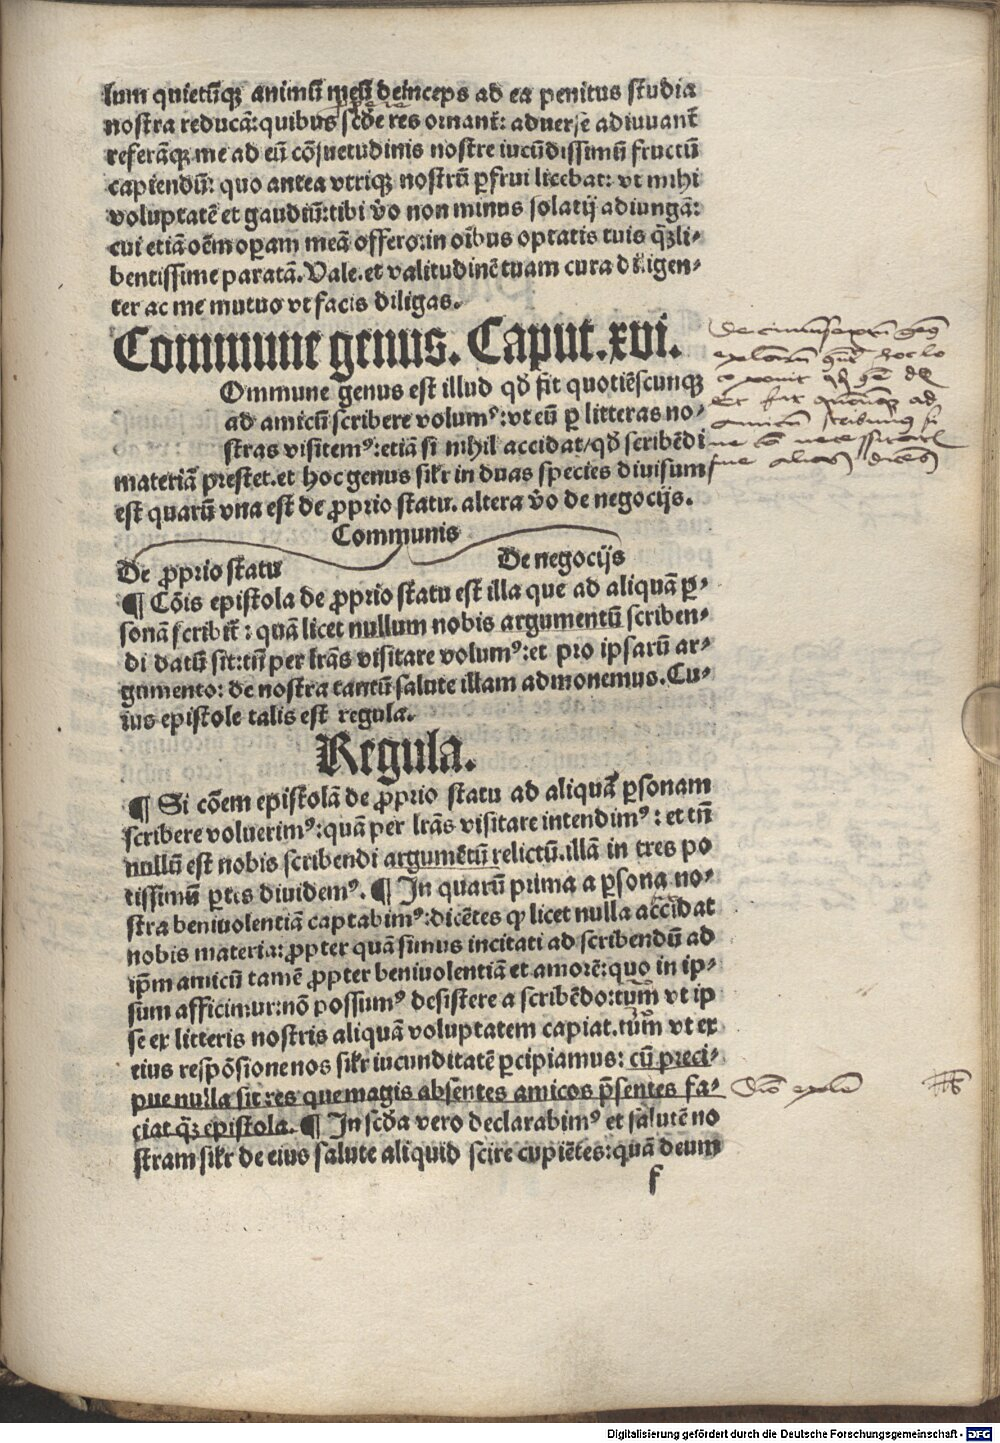 lum quietūqȝ animū meū deinceps ad ea penitus studia
nostra reducā: quibus scḋe res ornant᷑: aduerse adiuuant᷑
referāqȝ me ad eū cōsuetudinis nostre iucūdissimū fructū
capiendū: quo antea vtriqȝ nostrū ꝑfrui licebat: vt mihi
voluptatē et gaudiū: tibi v̇o non minus solatij adiungā:
cui etiā oēm oꝑam meā offero: in oībus optatis tuis q̄ȝli-
bentissime paratā. Vale. et valitudinē tuam cura diligen-
ter ac me mutuo vt facis diligas.
Commune genus. Caput. xvi.
Ommune genus est illud qḋ fit quotiēscunqȝ
ad amicū scribere volumꝰ: vt eū ꝑ litteras no-
stras visitemꝰ: etiā si nihil accidat/ qḋ scribēdi
materiā prestet. et hoc genus silr in duas species diuisum
est quarū vna est de ꝓprio statu. altera v̇o de negocijs.
Communis
De ꝓprio statu De negocijs
¶ Cōis epistola de ꝓprio statu est illa que ad aliquā ꝑ-
sonā scribit᷑: quā licet nullum nobis argumentū scriben-
di datū sit: tn̄ per lrās visitare volumꝰ: et pro ipsarū ar-
gumento: de nostra tantū salute illam admonemus. Cu-
ius epistole talis est regula.
Regula.
¶ Si cōem epistolā de ꝓprio statu ad aliquā ꝑsonam
scribere voluerimꝰ: quā per lrās visitare intendimꝰ: et tn̄
nullū est nobis scribendi argumētū relictū. illā in tres po
tissimū ꝑtes diuidemꝰ. ¶ In quarū prima a ꝑsona no-
stra beniuolentiā captabimꝰ: dicētes ꝙ licet nulla accidat
nobis materia: ꝓpter quā simus incitati ad scribendū ad
ip̄m amicū tamē ꝓpter beniuolentiā et amorē: quo in ip-
sum afficimur: nō possumꝰ desistere a scribēdo: tum vt ip
se ex litteris nostris aliquā voluptatem capiat. tum vt ex
eius respōsione nos silr iucunditatē ꝑcipiamus: cū preci-
pue nulla sit res que magis absentes amicos p̄sentes fa-
ciat q̄ȝ epistola. ¶ In scḋa vero declarabimꝰ et salutē no
stram silr de eius salute aliquid scire cupiētes: quā deum
f
Digitalisierung gefördert durch die Deutsche Forschungsgemeinschaft - DFG